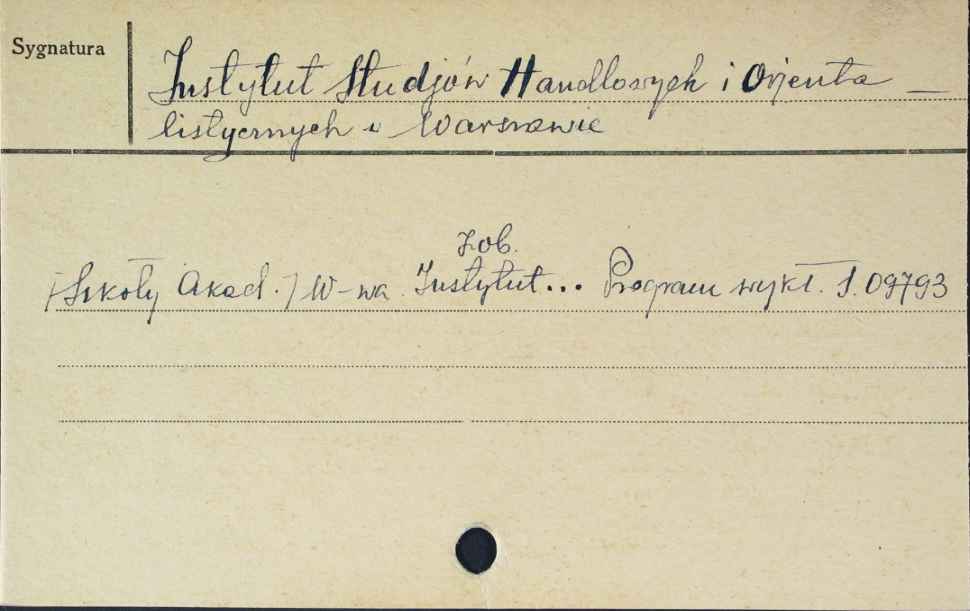 Sygnatura
Instytut Studjów Handlowych i Orjenta —
listycznych w Warszawie
Zob.
[Szkoły Akad.] W-wa. Instytut... Program wykł. S.09793